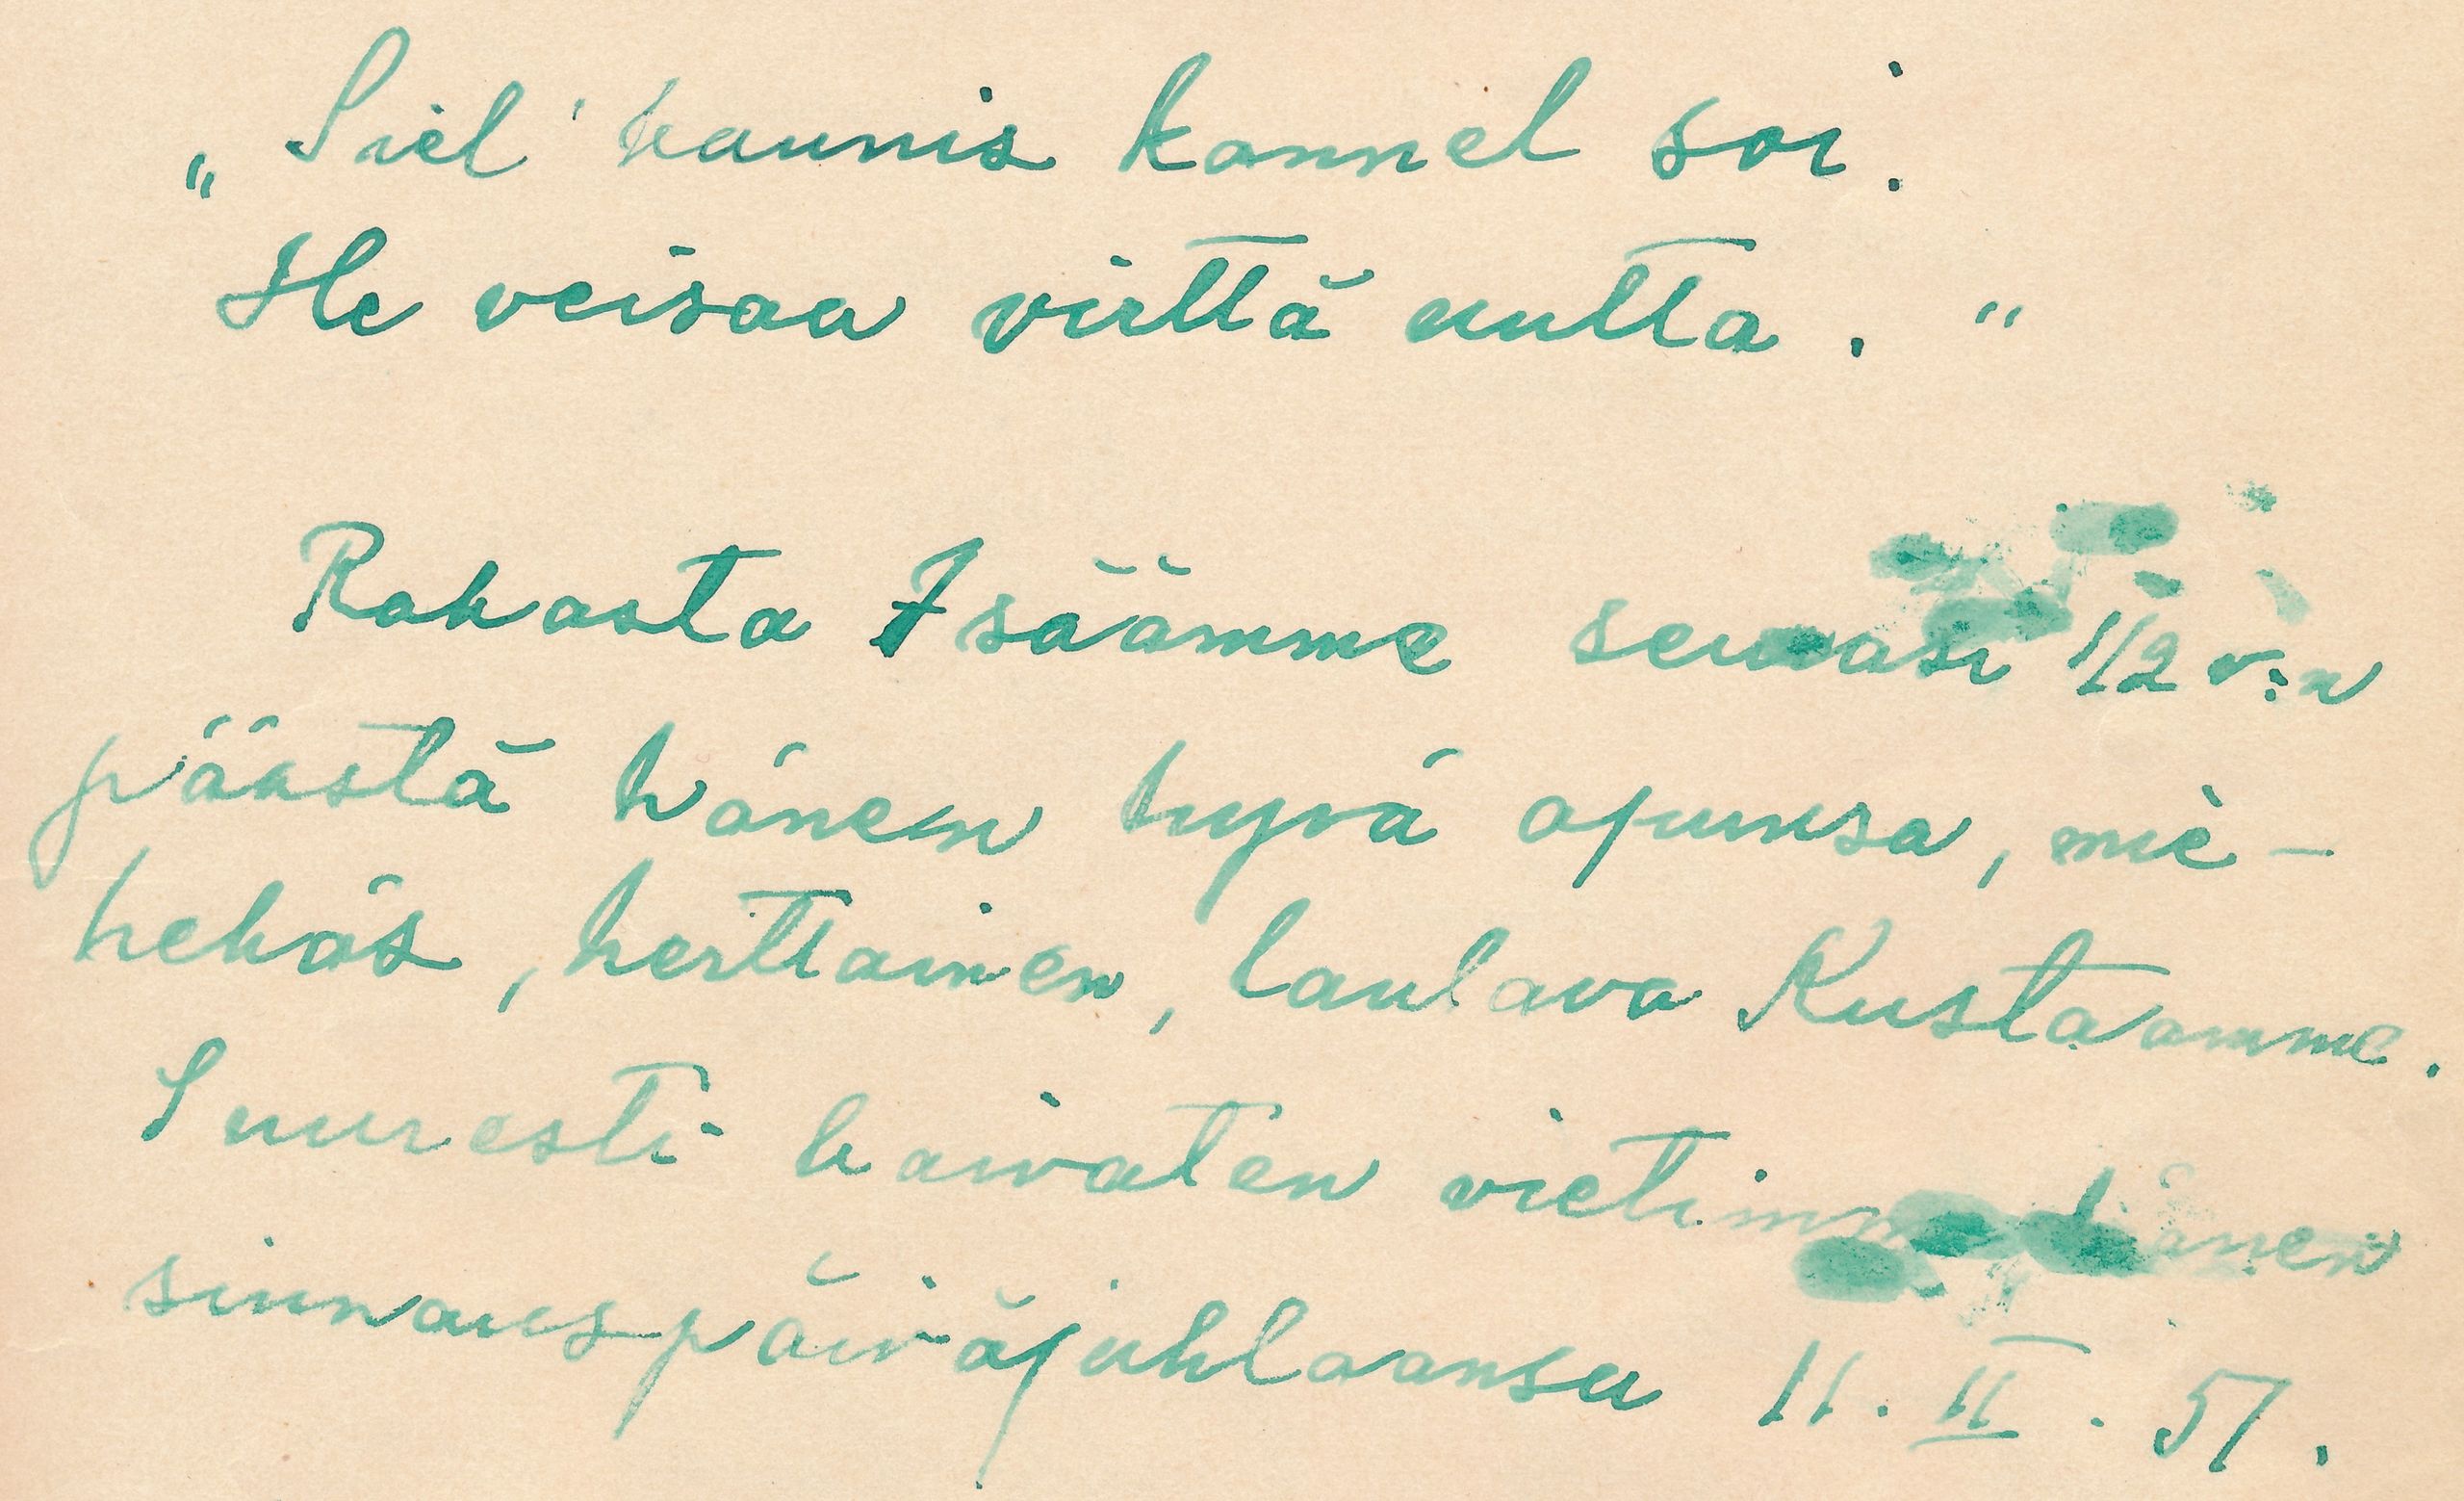 „Siel' kaunis kannel soi.
He veisaa virttä uutta."
Rakasta Isäämme seurasi 1/2 v:n
päästä hänen hyvä apunsa, mie-
hekäs, herttainen, laulava Kustaamme.
Suuresti kaivaten vietimme hänen
siunauspäiväjuhlaansa 11.II.51.